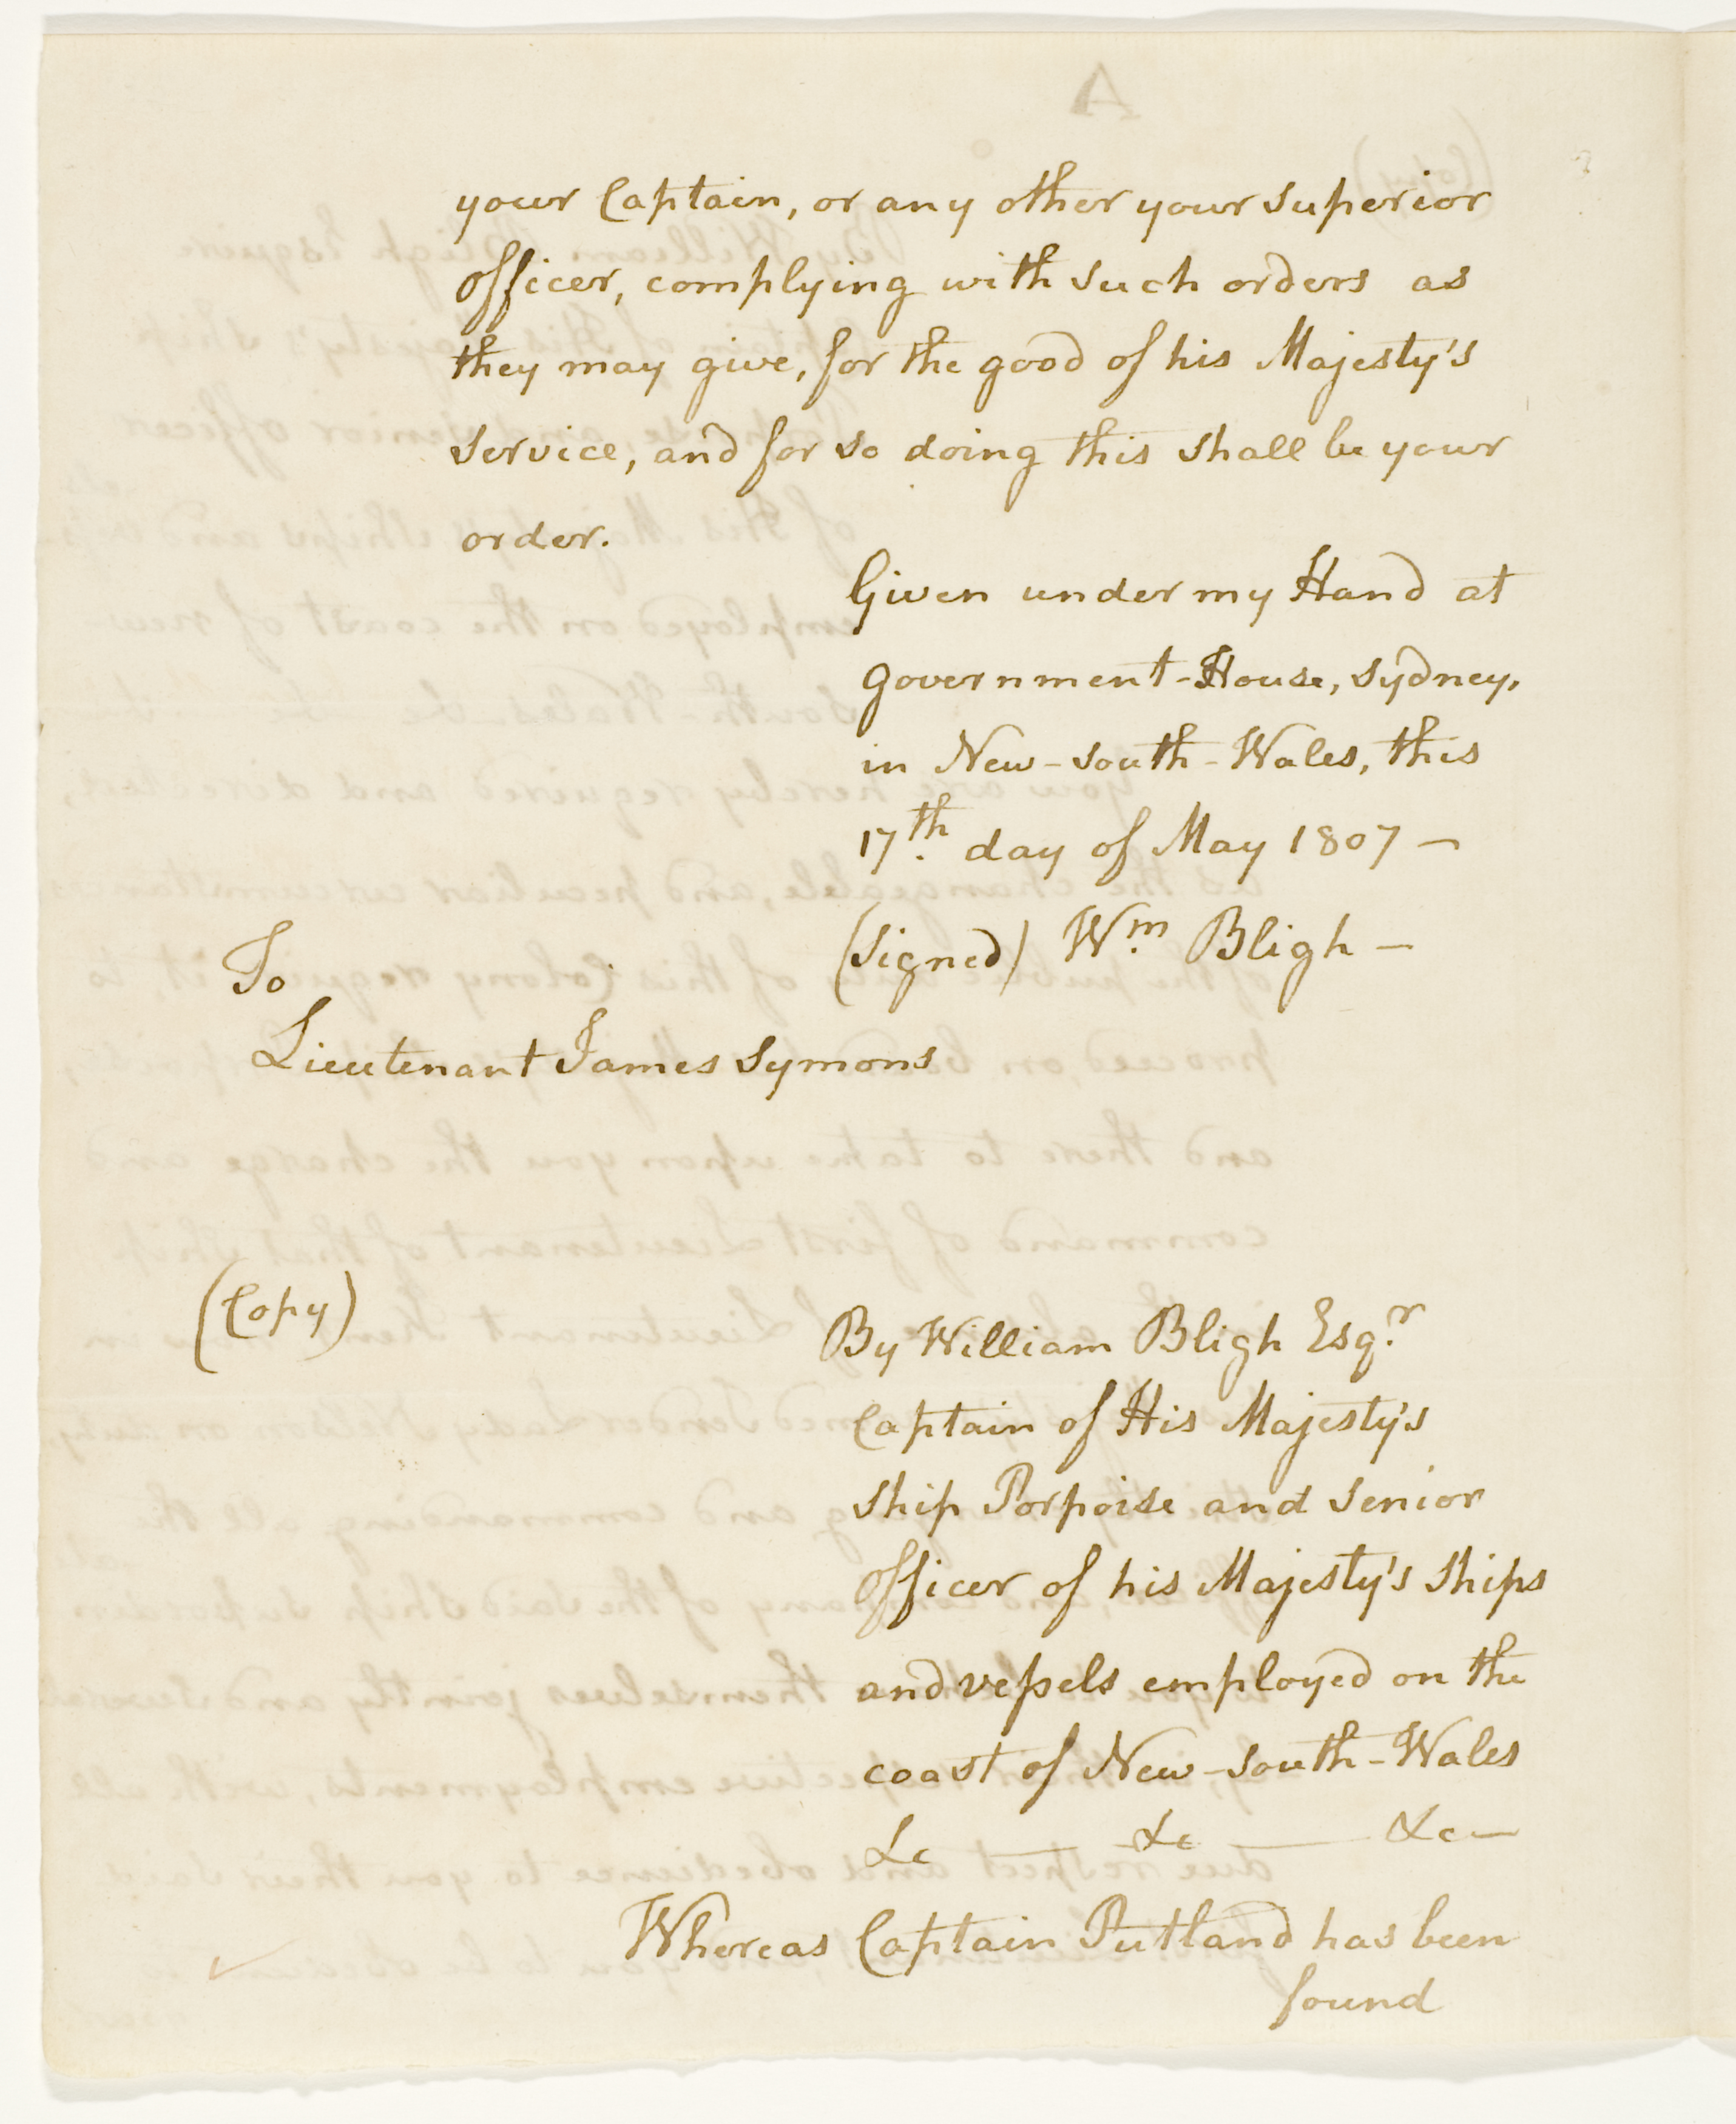 your Captain, or any other your superior
officer, complying with such orders as
they may give, for the good of his Majesty's
service, and for so doing this shall be your
order.
Given under my Hand at
Government-House, Sydney,
in New-South-Wales, this
17th. day of May 1807 —
(Signed) Wm. Bligh —
To
Lieutenant James Symons
(Copy)
By William Bligh Esqr.
Captain of His Majesty's
Ship Porpoise and Senior
Officer of his Majesty's Ships
and vessels employed on the
coast of New-South-Wales
&c — &c — &c —
Whereas Captain Putland has been
found